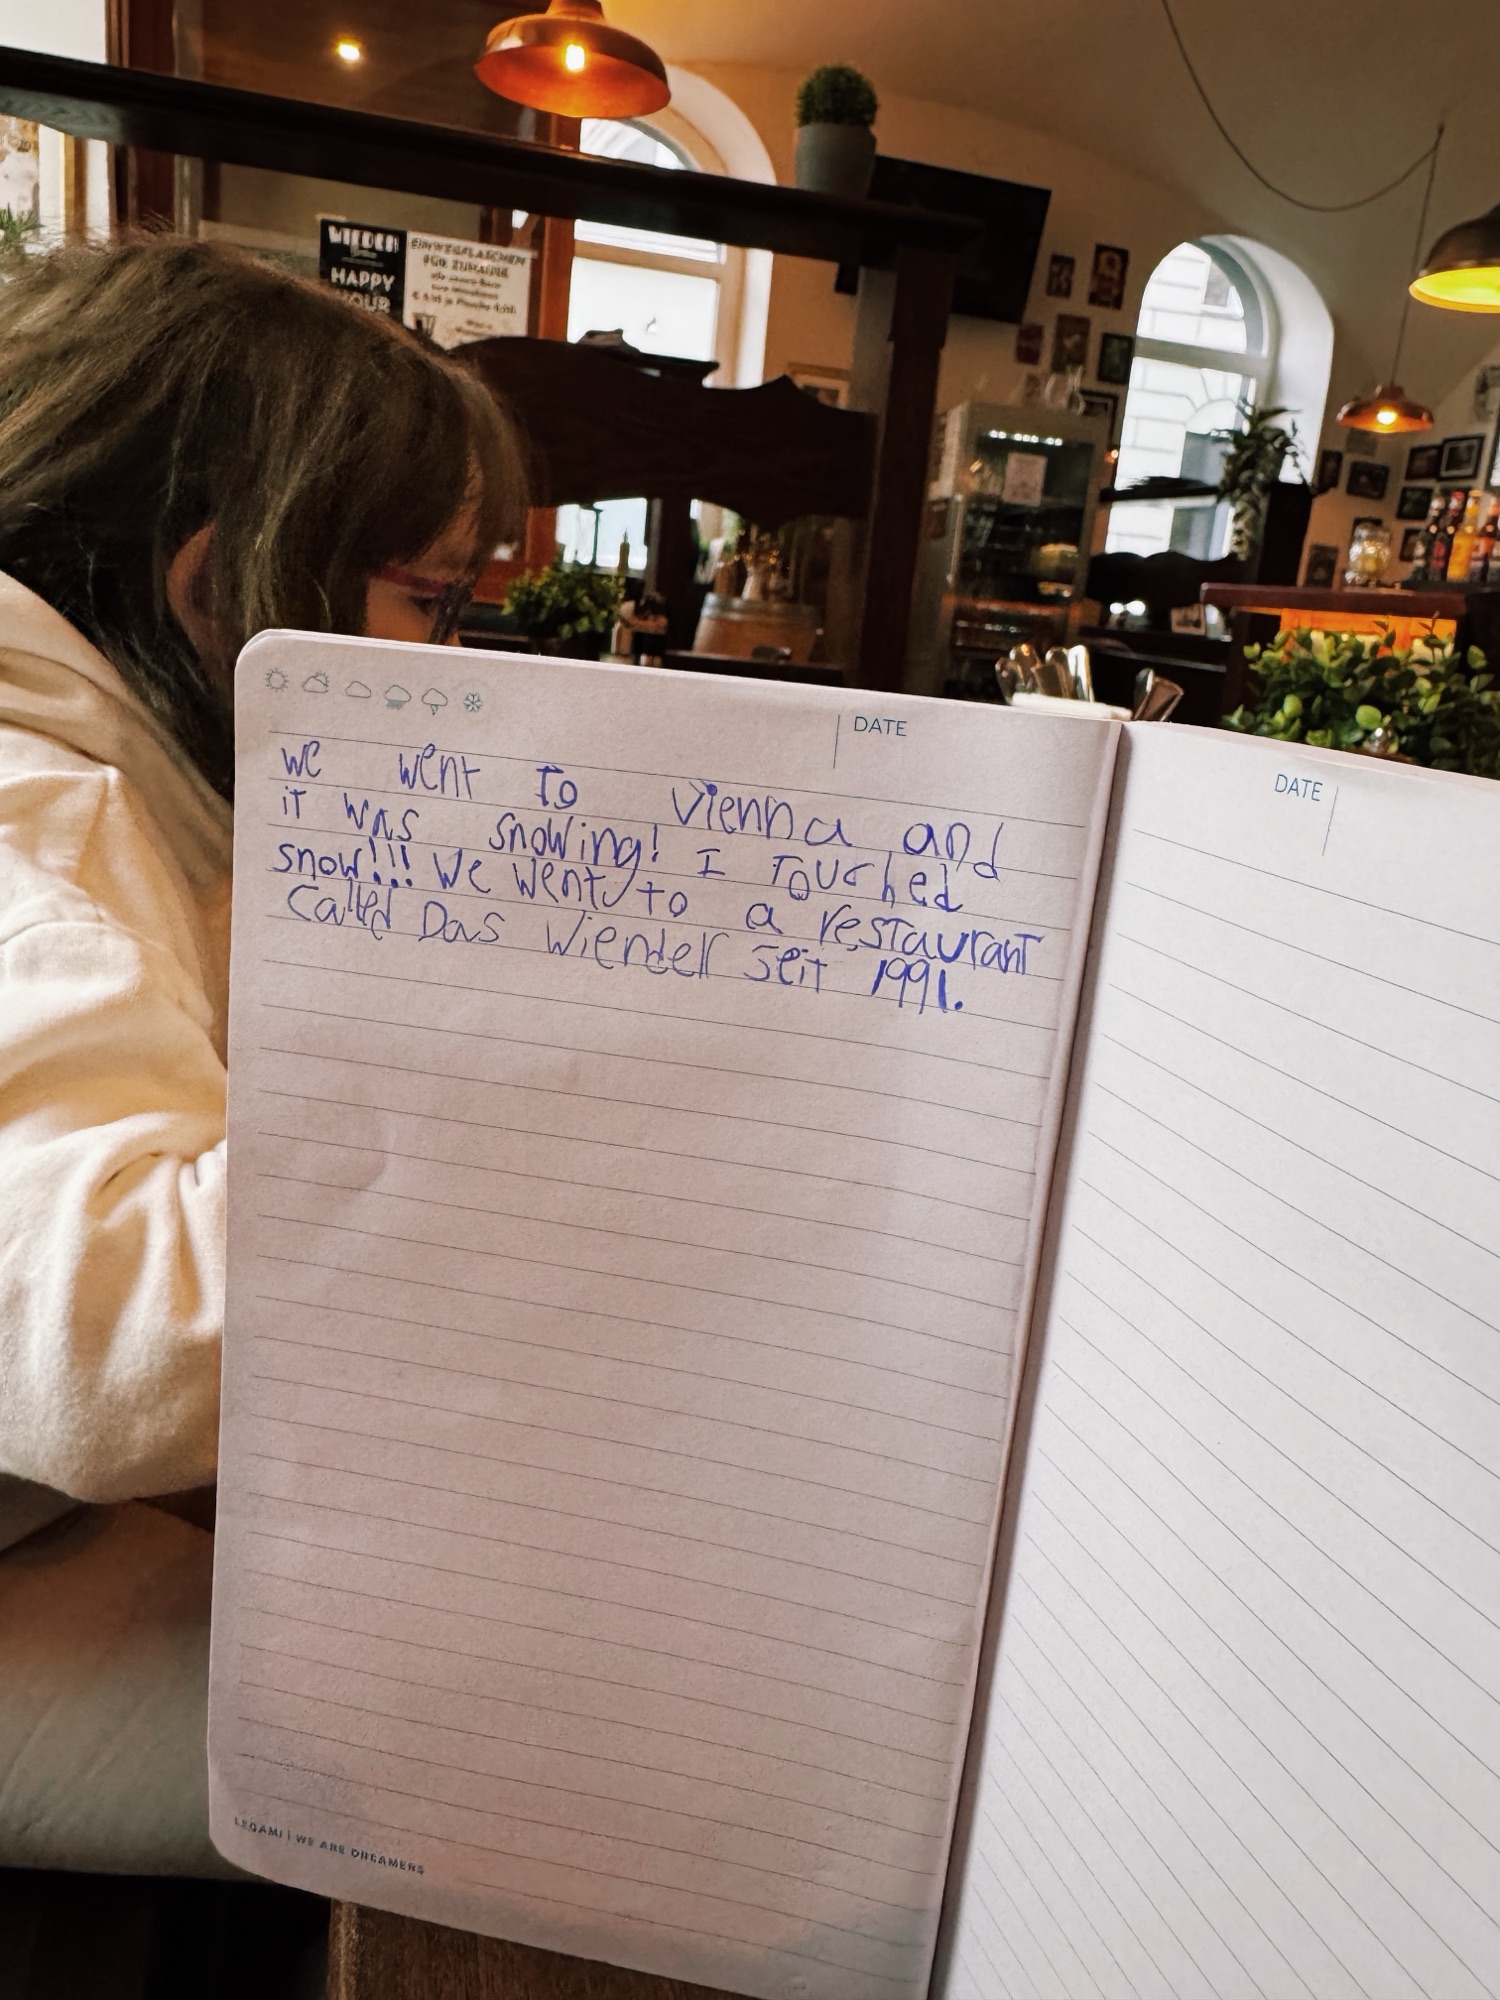 WIEDEN
HAPPY
HOUR
EINWEGFLASCHEN
FÜR ZUHAUSE
DATE
we went to Vienna and
it was snowing! I Touched
snow!!! We Went to a restaurant
Called Das Wiender seit 1991.
LEGAMI | WE ARE DREAMERS
DATE